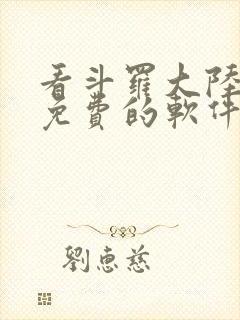 看斗羅大陸
免費的軟件
劉惠慈